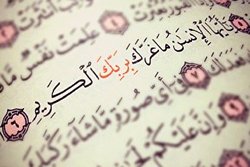 عَلِمَتْ نَفْسٌ مَّا
يَٰٓأَيُّهَا ٱلْإِنسَٰنُ مَا غَرَّكَ بِرَبِّكَ ٱلْكَرِيمِ ٦
٧ فِىٓ أَىِّ صُورَةٍ مَّا شَآءَ رَكَّبَكَ
وَإِنَّ عَلَيْكُمْ